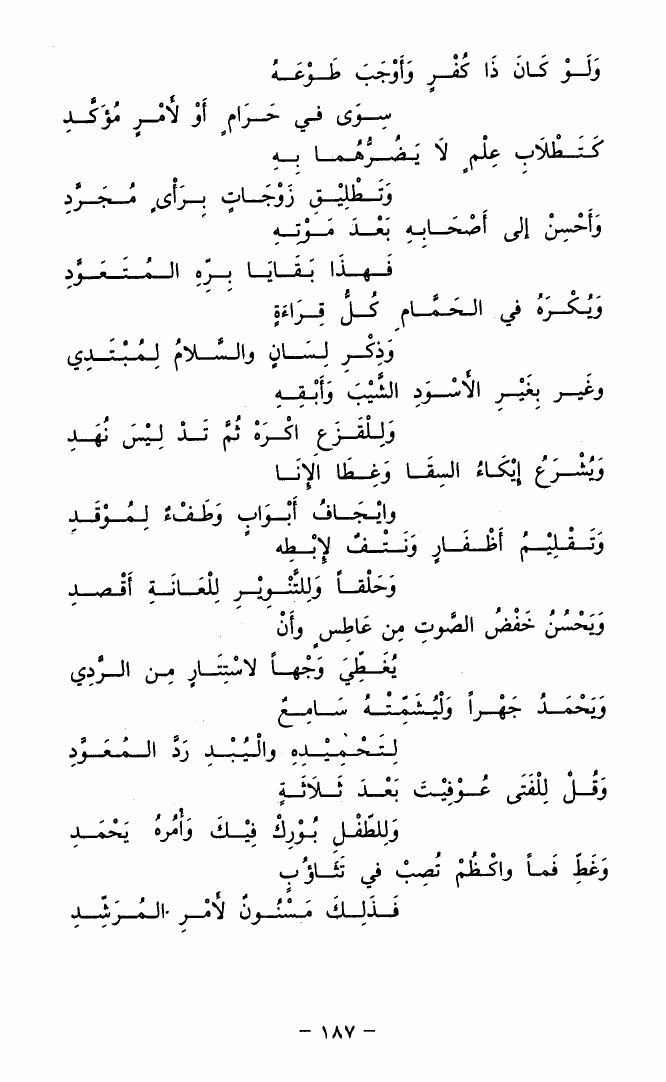 وَلَوْ كَانَ ذَا كُفْرٍ وَأَوْجَبَ طَوْعَهُ
سِوَى في حَرَامٍ أَوْ لأَمْرٍ مُؤَكَّدِ
كَتَطْلَابِ عِلْمٍ لَا يَضُرُّهُمَا بِهِ
وَتَطْلِيقِ زَوْجَاتٍ بِرَأْيٍ مُجَرَّدِ
وَأَحْسِنْ إِلى أَصْحَابِهِ بَعْدَ مَوْتِهِ
فَهَذَا بَقَايَا بِرِّهِ المُتَعَوَّدِ
وَيُكْرَهُ في الحَمَّامِ كُلُّ قِرَاءَةٍ
وَذِكْرِ لِسَانٍ والسَّلَامُ لِمُبْتَدِي
وغَيرِ بِغَيْرِ الأَسْوَدِ الشَّيْبَ وَأَبْقِهِ
وَلِلْقَزَعِ اكْرَهْ ثُمَّ تَدْلِيسَ نُهَّدِ
وَيُشْرَعُ إِيْكَاءُ السِقَا وَغِطَا الإِنَا
وايْجَافُ أَبْوَابٍ وَطَفْءٌ لِمُوْقَدِ
وَتَقْلِيمُ أَظْفَارٍ وَنَتْفٌ لإِبْطِهِ
وَحَلْقاً وَلِلتَّنْوِيْرِ لِلْعَانَةِ أقْصِدِ
وَيَحْسُنُ خَفْضُ الصَّوتِ مِن عَاطِسٍ وأَنْ
يُغَطِّيَ وَجْهاً لاسْتِتَارٍ مِن الرَّدِي
وَيَحْمَدُ جَهْراً وَلْيُشَمِّتْهُ سَامِعٌ
لِتَحْمِيْدِهِ والْيُبْدِ رَدَّ المُعَوَّدِ
وَقُلْ لِلْفَتَى عُوْفِيتَ بَعْدَ ثَلَاثَةٍ
وَلِلطِّفْلِ بُوْرِكْ فِيْكَ وَأْمُرْهُ يَحْمَدِ
وَغَطِّ فَماً واكْظُمْ تُصِبْ في تَثَاؤُبٍ
فَذلِكَ مَسْنُونٌ لأَمْرِ المُرَشِّدِ
- ١٨٧ -